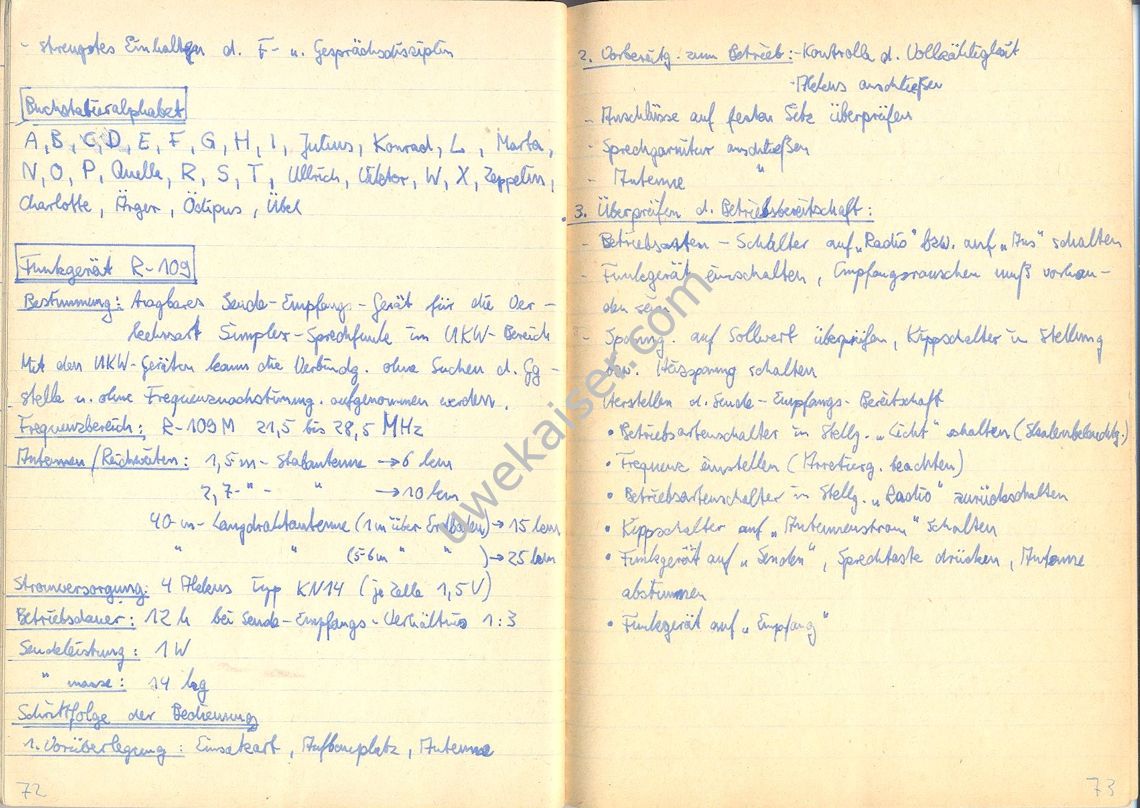 - strengstes Einhalten d. F- u. Gesprächsdisziplin
Buchstabieralphabet
A, B, C, D, E, F, G, H, I, Julius, Konrad, L, Marta,
N, O, P, Quelle, R, S, T, Ullrich, Viktor, W, X, Zeppelin,
Charlotte, Ärger, Ödipus, Übel
Funkgerät R-109
Bestimmung: tragbares Sende-Empfangs-Gerät für die Ver-
kehrsart Simplex-Sprechfunk im UKW-Bereich
Mit den UKW-Geräten kann die Verbindg. ohne Suchen d. Gg-
stelle u. ohne Frequenznachstimmg. aufgenommen werden.
Frequenzbereich: R-109M 21,5 bis 28,5 MHz
Antennen/Reichweiten: 1,5m-Stabantenne → 6 km
2,7- " - " → 10 km
40-m-Langdrahtantenne (1m über Erdboden) → 15 km
" " (5-6m " " ) → 25 km
Stromversorgung: 4 Akkus Typ KN14 (je Zelle 1,5V)
Betriebsdauer: 12h bei Sende-Empfangs-Verhältnis 1:3
Sendeleistung: 1W
" masse: 14 kg
Schrittfolge der Bedienung
1. Vorüberlegung: Einsatzart, Aufbauplatz, Antenne
72
2. Vorbereitg. zum Betrieb: - Kontrolle d. Vollzähligkeit
- Akkus anschließen
- Anschlüsse auf festen Sitz überprüfen
- Sprechgarnitur anschließen
- Antenne "
3. Überprüfen d. Betriebsbereitschaft:
- Betriebsarten-Schalter auf „Radio" bzw. auf „Aus" schalten
- Funkgerät einschalten, Empfangsrauschen muß vorhan-
den sein
- Spanng. auf Sollwert überprüfen, Kippschalter in Stellung
bzw. schalten
Herstellen d. Sende-Empfangs-Bereitschaft
• Betriebsartenschalter in Stellg. „Licht" schalten (Skalenbeleuchtg.)
• Frequenz einstellen (Arretierg. beachten)
• Betriebsartenschalter in Stellg. „Radio" zurückschalten
• Kippschalter auf „Antennenstrom" schalten
• Funkgerät auf „Senden", Sprechtaste drücken, Antenne
abstimmen
• Funkgerät auf „Empfang"
73
uwekaiser.com